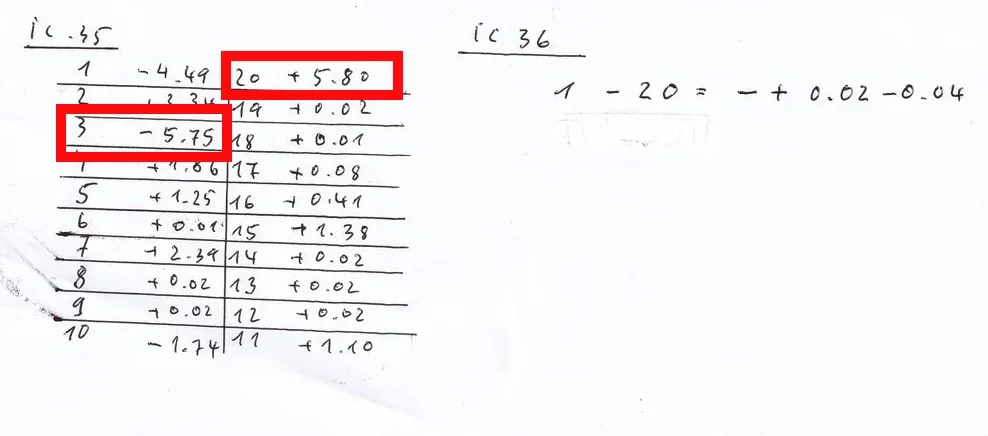 ic.35
ic 36
1 -4.49 20 +5.80
2 19 +0.02
3 -5.75 18 +0.01
+1.86 17 +0.08
5 +1.25 16 +0.41
6 +0.01 15 +1.38
7 +2.39 14 +0.02
8 +0.02 13 +0.02
9 +0.02 12 +0.02
10 -1.74 11 +1.10
1 - 20 = - + 0.02 - 0.04